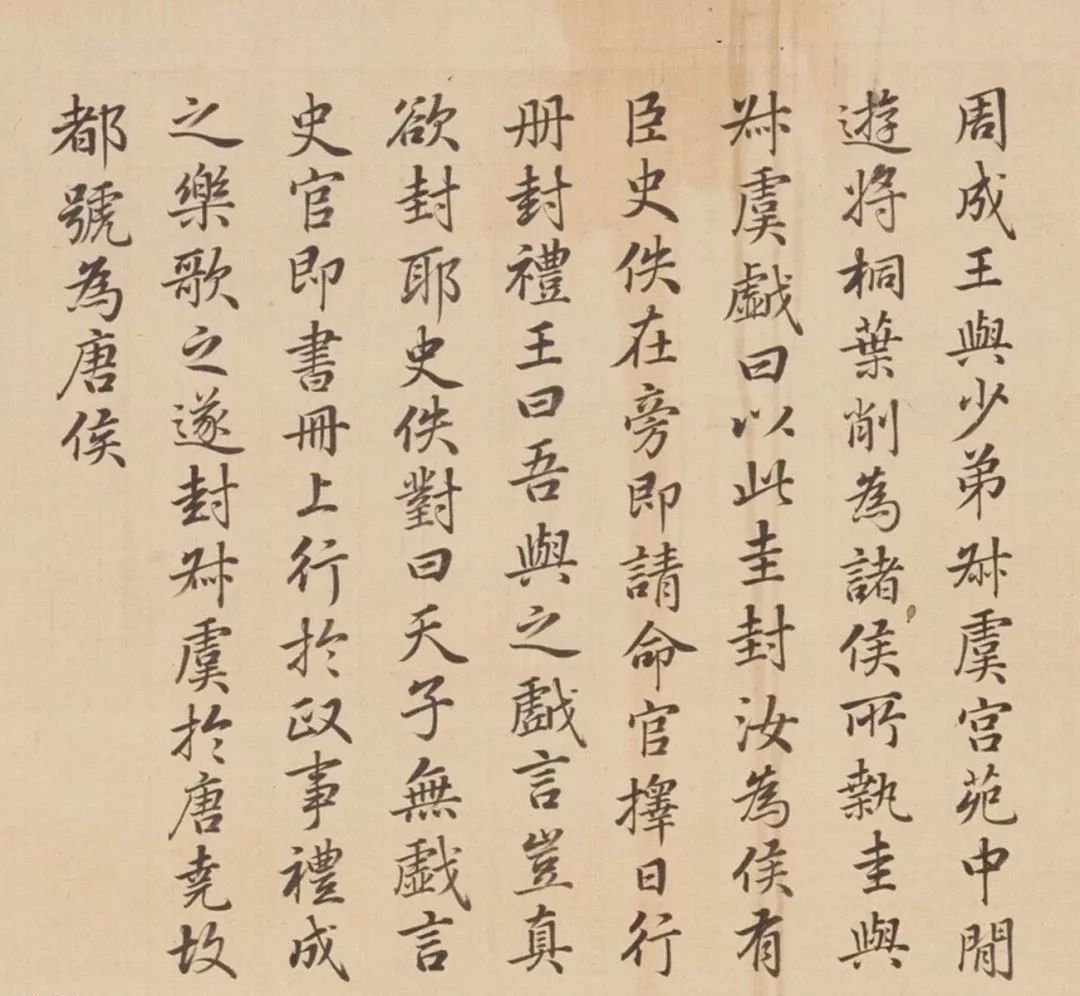 周成王與少弟叔虞宫苑中閒
遊將桐葉削為諸侯所執圭與
叔虞戯曰以此圭封汝為侯有
臣史佚在旁即請命官擇日行
册封禮王曰吾與之戯言豈真
欲封耶史佚對曰天子無戯言
史官即書冊上行於政事禮成
之樂歌之遂封叔虞於唐堯故
都號為唐侯